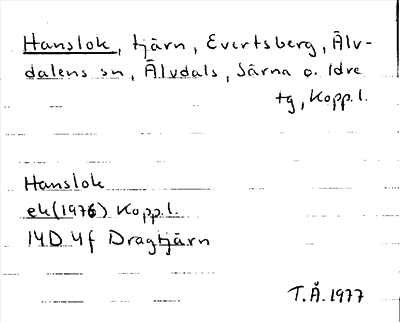 Hanslok, tjärn, Evertsberg, Älv-
dalens sn, Älvdals, Särna o. Idre
tg, Kopp.l.
Hanslok
ek(1976) Kopp.l.
14D 4f Dragtjärn
T.Å.1977